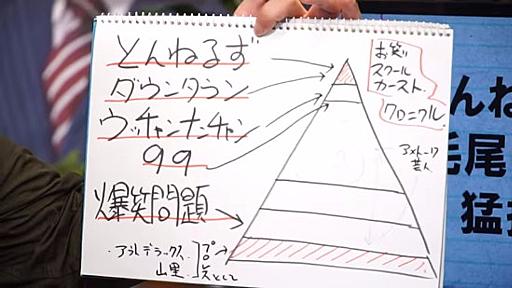 とんねるず
ダウンタウン
ウッチャンナンチャン
99
爆笑問題
山里
お笑い
スクール
カースト
クロニクル
アメトーーク
芸人
んね
毛尾
猛